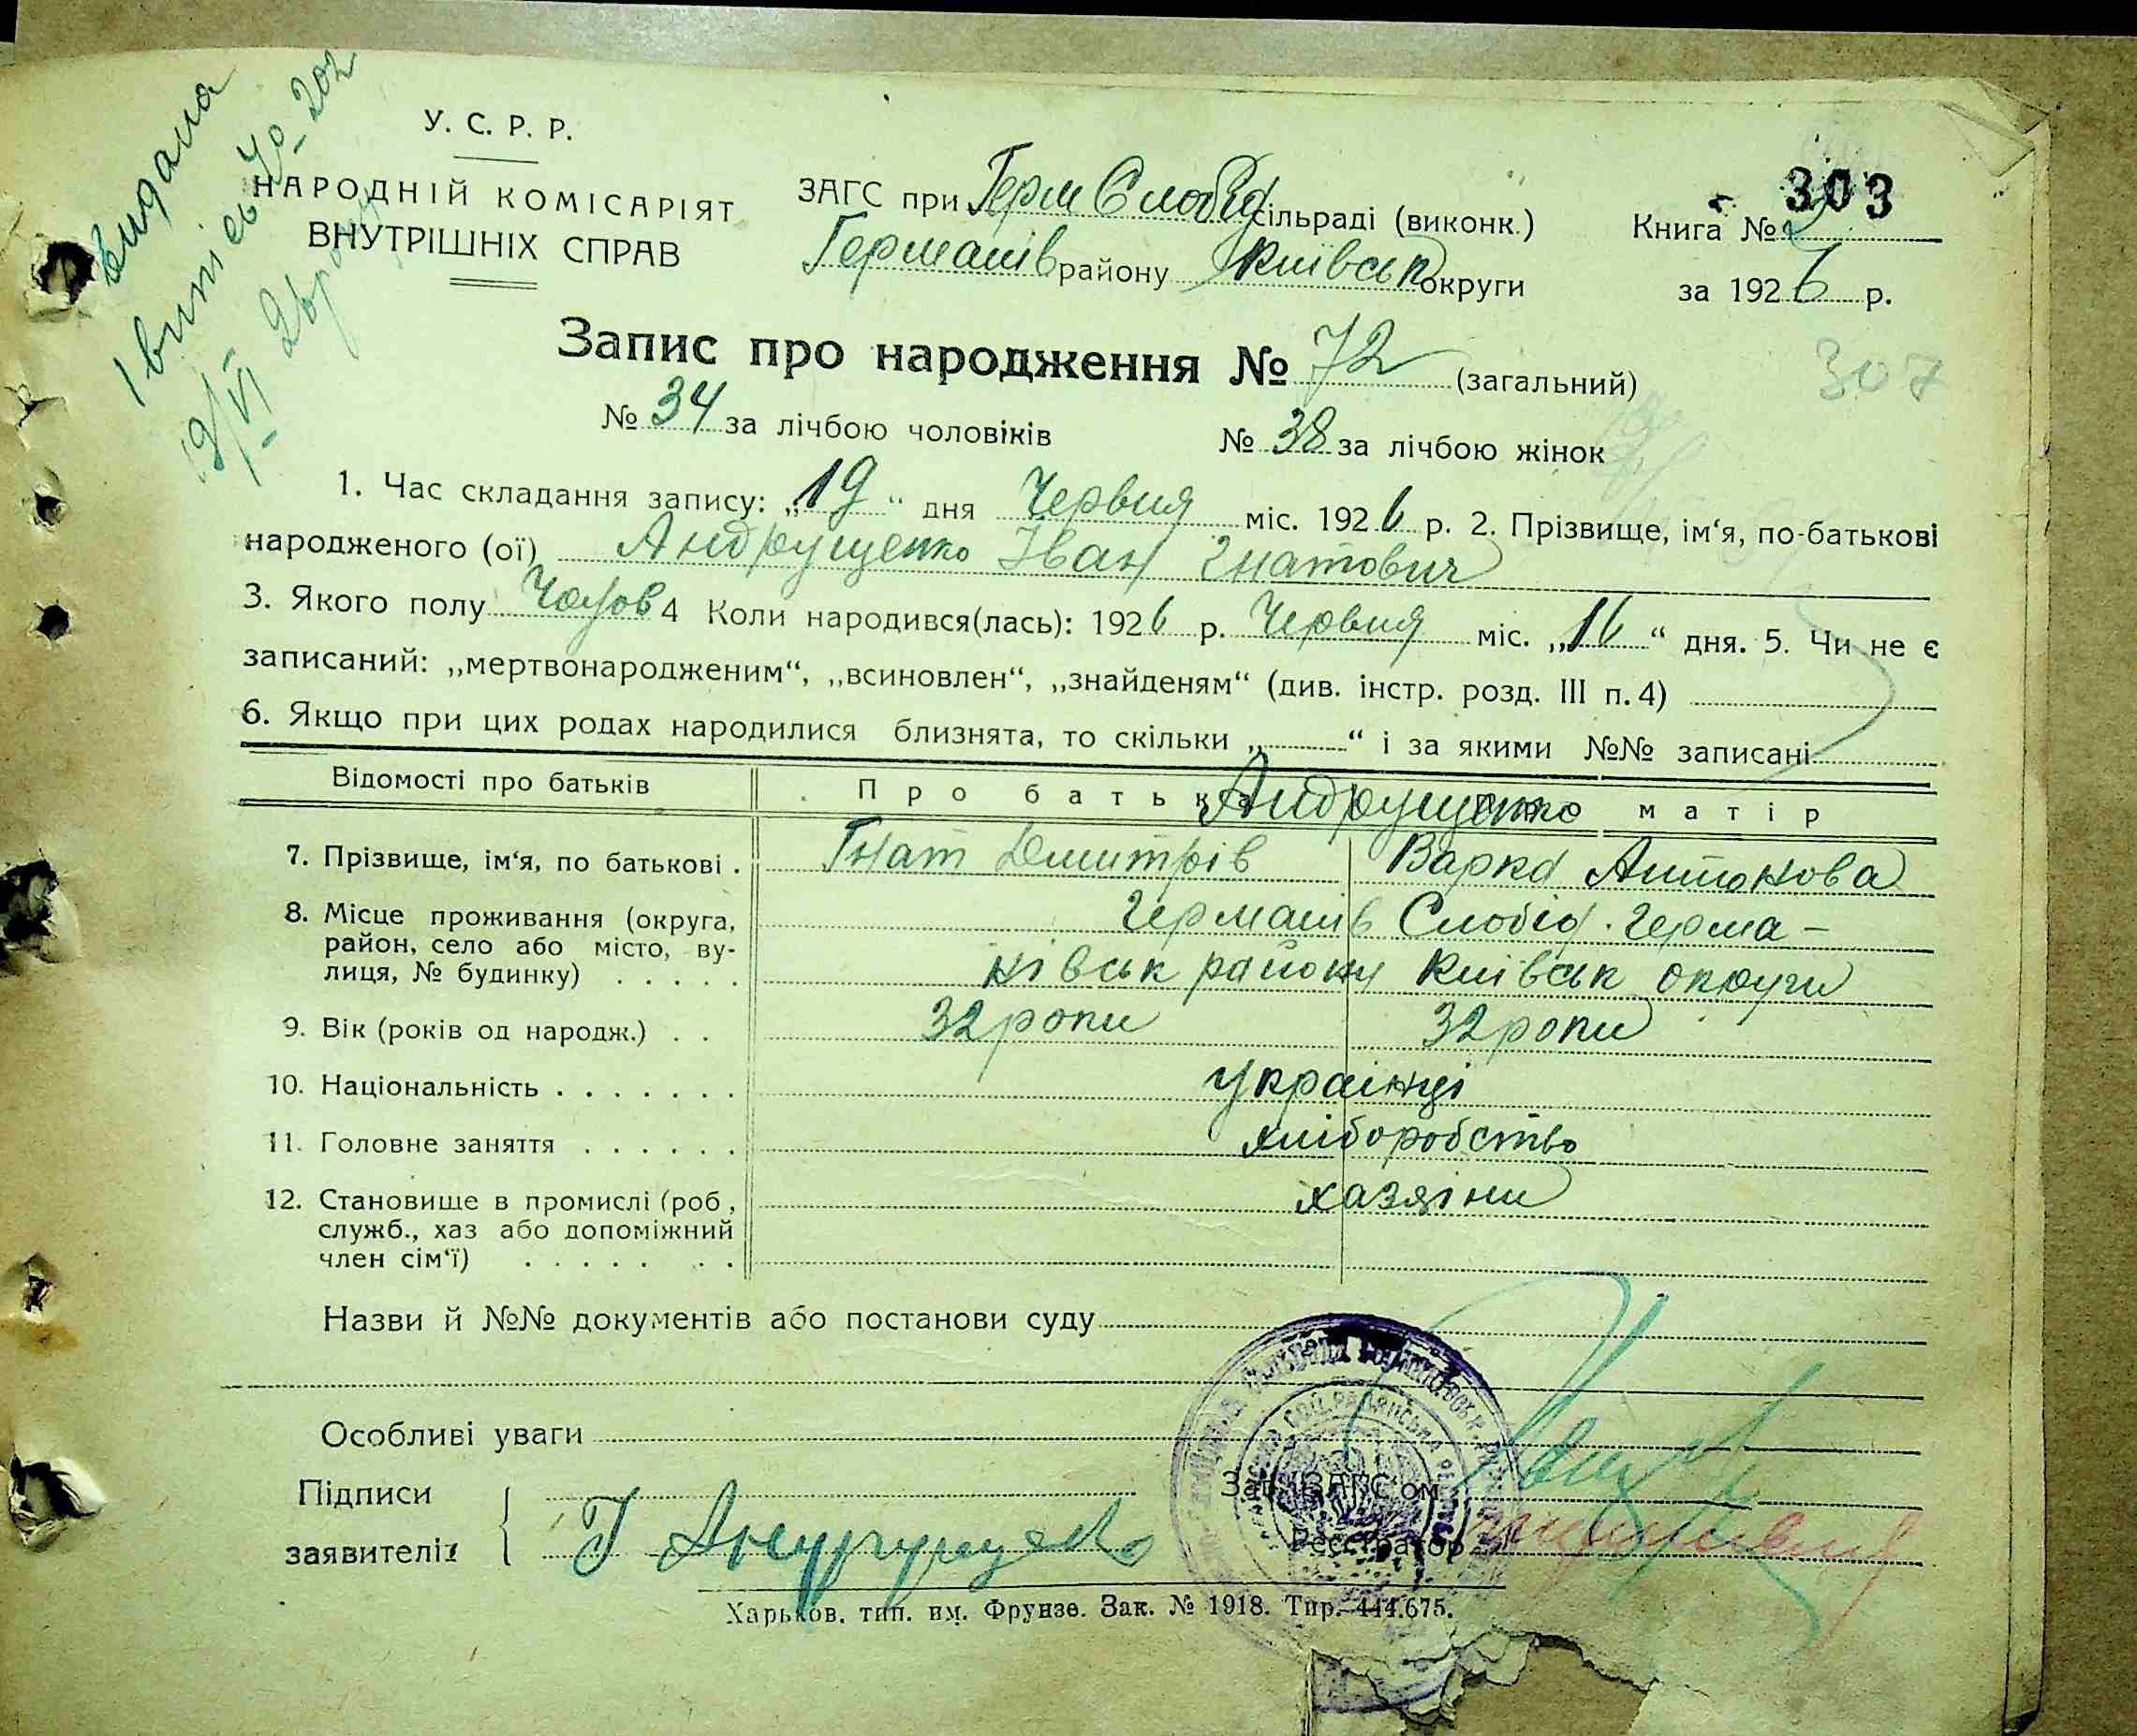 видана
Івитієв № 202
19/VI 26 року
У. С. Р. Р.
НАРОДНІЙ КОМІСАРІЯТ
ВНУТРІШНІХ СПРАВ
ЗАГС при Герм Слобід сільраді (виконк.)
Германів району Київськ округи
303
Книга № 2
за 1926 р.
Запис про народження № 72 (загальний)
307
№ 34 за лічбою чоловіків № 38 за лічбою жінок
1. Час складання запису: „19“ дня Червня міс. 1926 р. 2. Прізвище, ім‘я, по-батькові
народженого (ої) Андрущенко Іван Гнатович
3. Якого полу Чолов 4 Коли народився(лась): 1926 р. Червня міс. „16“ дня. 5. Чи не є
записаний: „мертвонародженим“, „всиновлен“, „знайденям“ (див. інстр. розд. III п. 4)
6. Якщо при цих родах народилися близнята, то скільки „ “ і за якими №№ записані
Відомості про батьків Про батька Про матір
Андрущенко
7. Прізвище, ім‘я, по батькові . Гнат Дмитрів Варка Антонова
8. Місце проживання (округа, Германів Слобід. Герма-
район, село або місто, ву- ківськ району Київськ округи
лиця, № будинку) . . . . .
9. Вік (років од народж.) . . 32 роки 32 роки
10. Національність . . . . . . . українці
11. Головне заняття . . . . . . хліборобство
12. Становище в промислі (роб, хазяїни
служб., хаз або допоміжний
член сім‘ї) . . . . . . .
Назви й №№ документів або постанови суду
Особливі уваги
Підписи
заявителів
Г Андрущенко
Зав. ЗАГС‘ом
Реєстратор
Харьков. тип. им. Фрунзе. Зак. № 1918. Тир. 444.675.